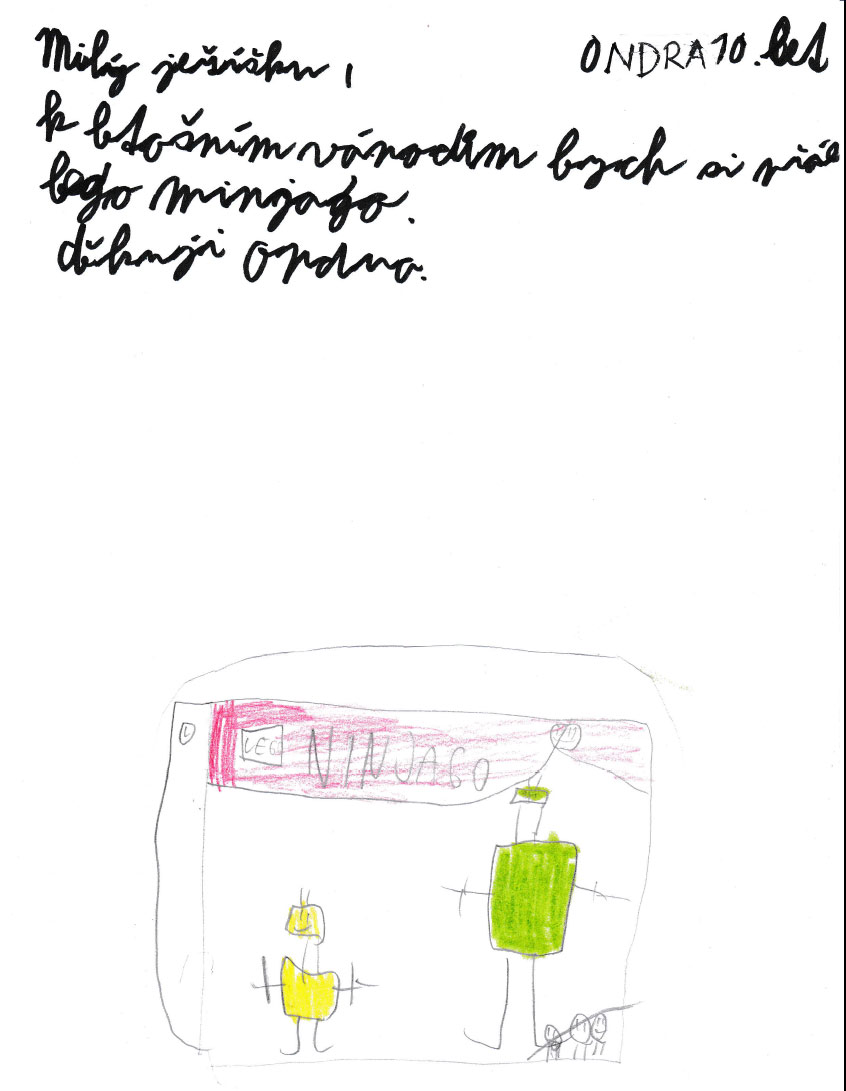 Milý ježíšku,
ONDRA 10. let
k letošním vánocům bych si přál
lego ninjago.
děkuji Ondra.
LEGO
NINJAGO